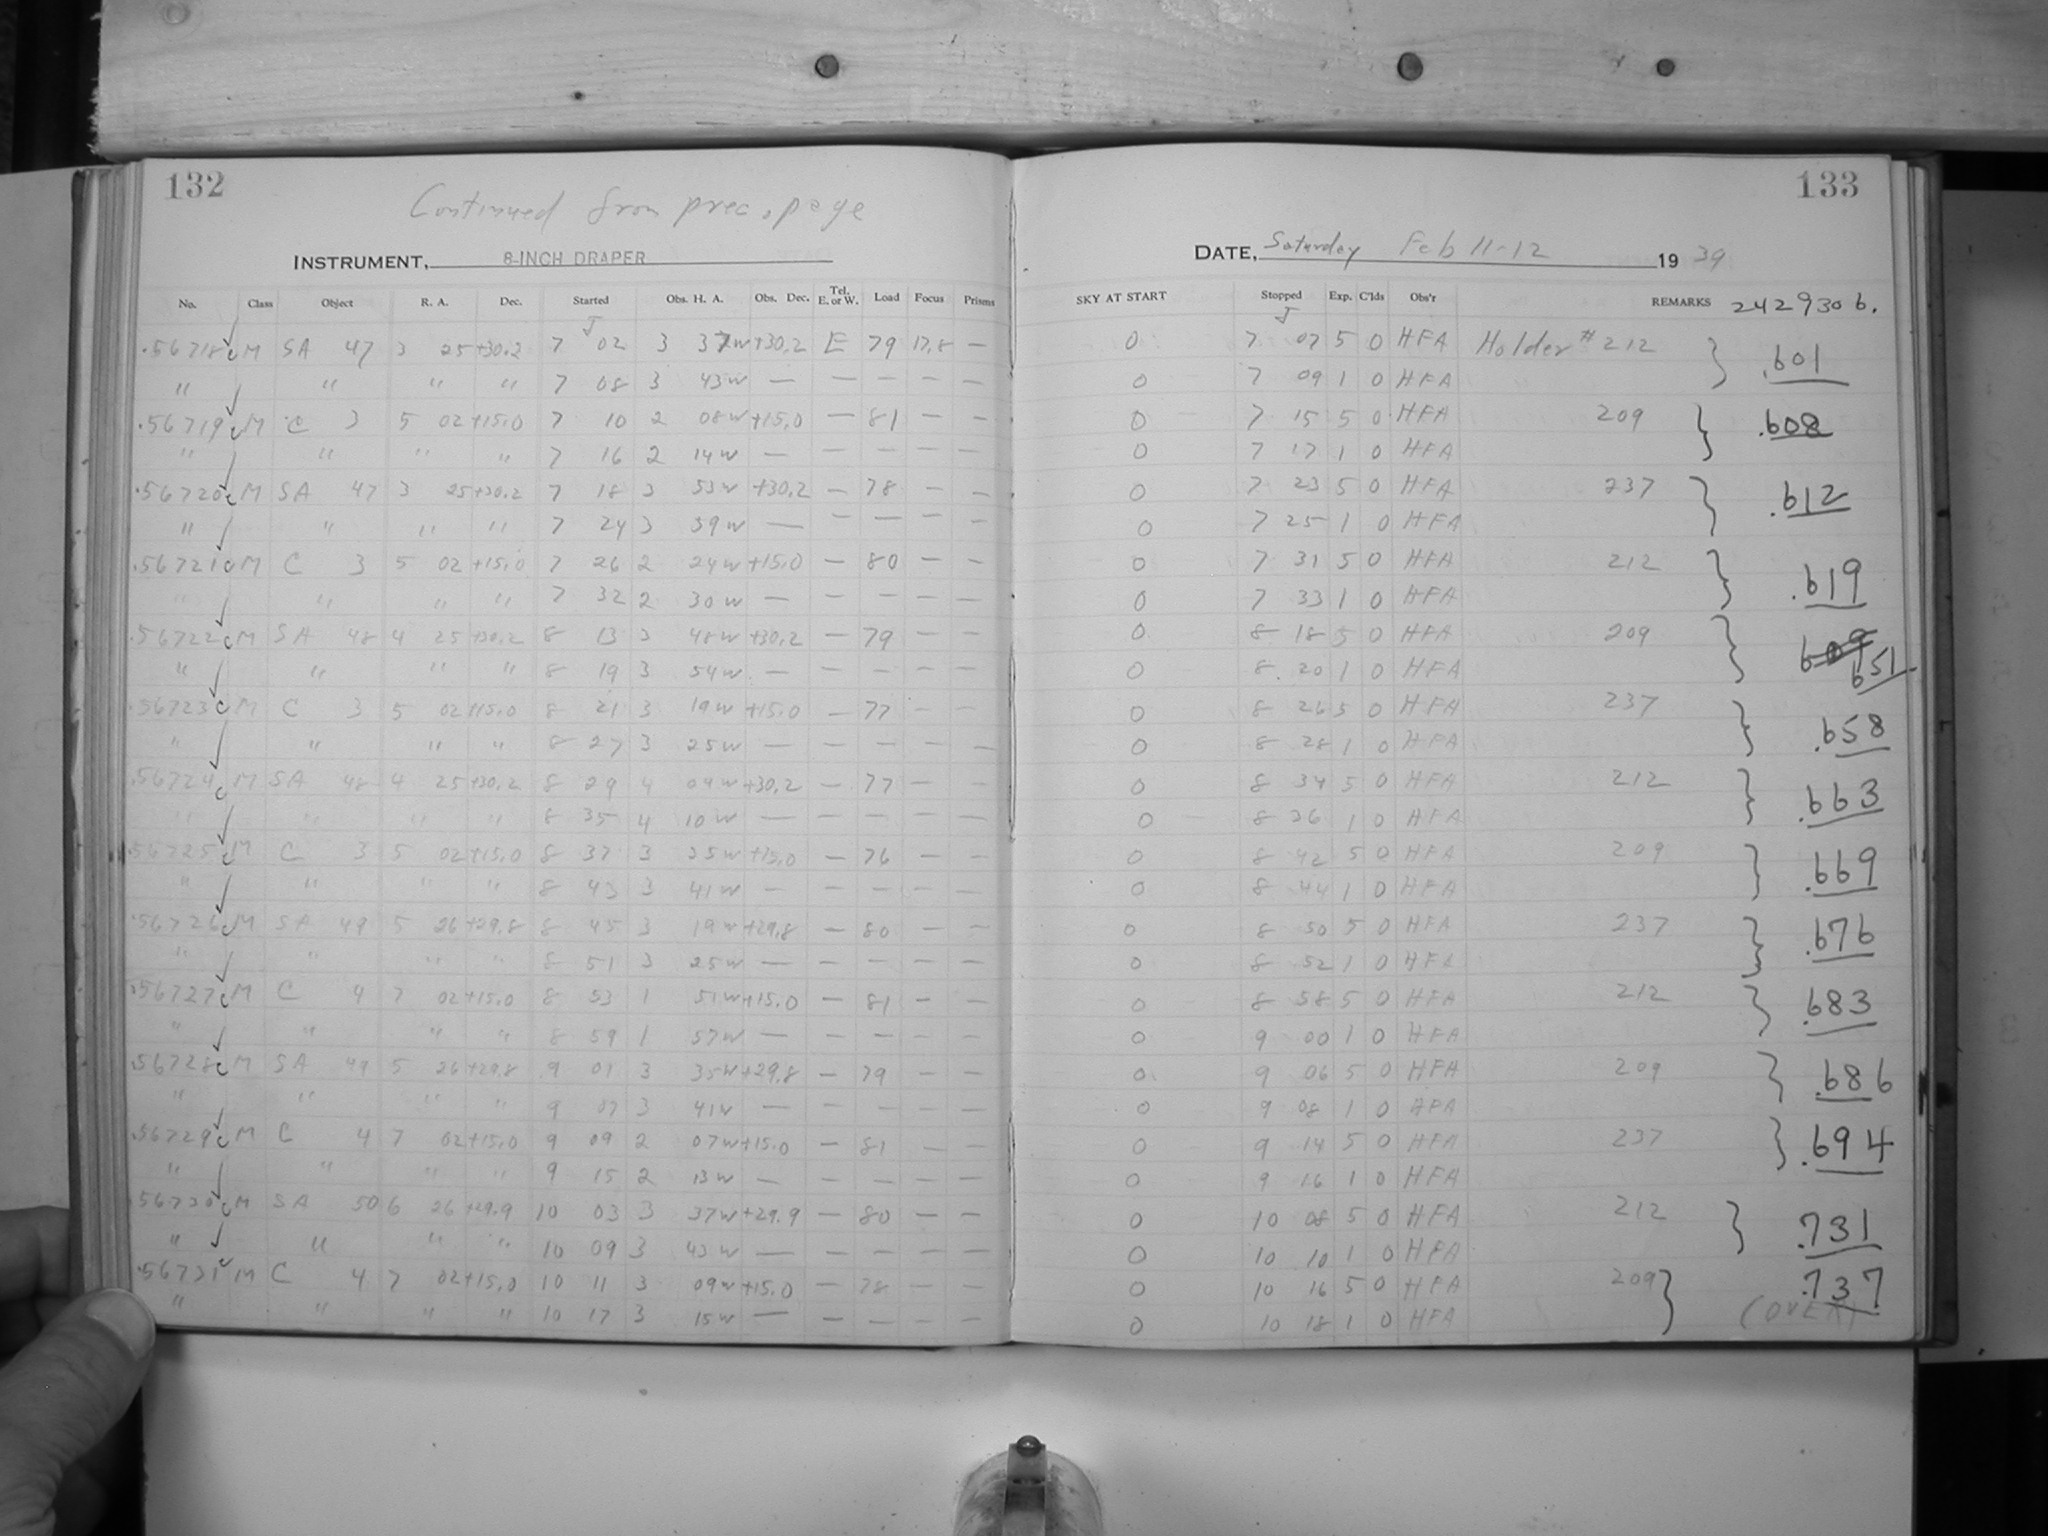 132
Continued from prec. page
INSTRUMENT, 8-INCH DRAPER
No. Class Object R. A. Dec. Started Obs. H. A. Obs. Dec. Tel. E. or W. Load Focus Prisms
.56718 M SA 47 3 25 +30.2 7 02 3 37w +30.2 E 79 17.8 —
" " " " 7 08 3 43w — — — — —
.56719 M C 3 5 02 +15.0 7 10 2 08w +15.0 — 81 — —
" " " " 7 16 2 14w — — — — —
.56720 M SA 47 3 25 +30.2 7 18 3 53w +30.2 — 78 — —
" " " " 7 24 3 59w — — — — —
.56721 M C 3 5 02 +15.0 7 26 2 24w +15.0 — 80 — —
" " " " 7 32 2 30w — — — — —
.56722 M SA 48 4 25 +30.2 8 13 3 48w +30.2 — 79 — —
" " " " 8 19 3 54w — — — — —
.56723 M C 3 5 02 +15.0 8 21 3 19w +15.0 — 77 — —
" " " " 8 27 3 25w — — — — —
.56724 M SA 48 4 25 +30.2 8 29 4 04w +30.2 — 77 — —
" " " " 8 35 4 10w — — — — —
.56725 M C 3 5 02 +15.0 8 37 3 35w +15.0 — 76 — —
" " " " 8 43 3 41w — — — — —
.56726 M SA 49 5 26 +29.8 8 45 3 19w +29.8 — 80 — —
" " " " 8 51 3 25w — — — — —
.56727 M C 4 7 02 +15.0 8 53 1 51w +15.0 — 81 — —
" " " " 8 59 1 57w — — — — —
.56728 M SA 49 5 26 +29.8 9 01 3 35w +29.8 — 79 — —
" " " " 9 07 3 41w — — — — —
.56729 M C 4 7 02 +15.0 9 09 2 07w +15.0 — 81 — —
" " " " 9 15 2 13w — — — — —
.56730 M SA 50 6 26 +29.9 10 03 3 37w +29.9 — 80 — —
" " " " 10 09 3 43w — — — — —
.56731 M C 4 7 02 +15.0 10 11 3 09w +15.0 — 78 — —
" " " " 10 17 3 15w — — — — —
133
DATE, Saturday Feb 11-12 1939
SKY AT START Stopped Exp. C'lds Obs'r REMARKS 2429306.
0 7 07 5 0 HFA Holder # 212 } .601
0 7 09 1 0 HFA
0 7 15 5 0 HFA 209 } .608
0 7 17 1 0 HFA
0 7 23 5 0 HFA 237 } .612
0 7 25 1 0 HFA
0 7 31 5 0 HFA 212 } .619
0 7 33 1 0 HFA
0 8 18 5 0 HFA 209 } 609
0 8 20 1 0 HFA 651
0 8 26 5 0 HFA 237 } .658
0 8 28 1 0 HFA
0 8 34 5 0 HFA 212 } .663
0 8 36 1 0 HFA
0 8 42 5 0 HFA 209 } .669
0 8 44 1 0 HFA
0 8 50 5 0 HFA 237 } .676
0 8 52 1 0 HFA
0 8 58 5 0 HFA 212 } .683
0 9 00 1 0 HFA
0 9 06 5 0 HFA 209 } .686
0 9 08 1 0 HFA
0 9 14 5 0 HFA 237 } .694
0 9 16 1 0 HFA
0 10 08 5 0 HFA 212 } .731
0 10 10 1 0 HFA
0 10 16 5 0 HFA 209 } .737
0 10 18 1 0 HFA (OVER)